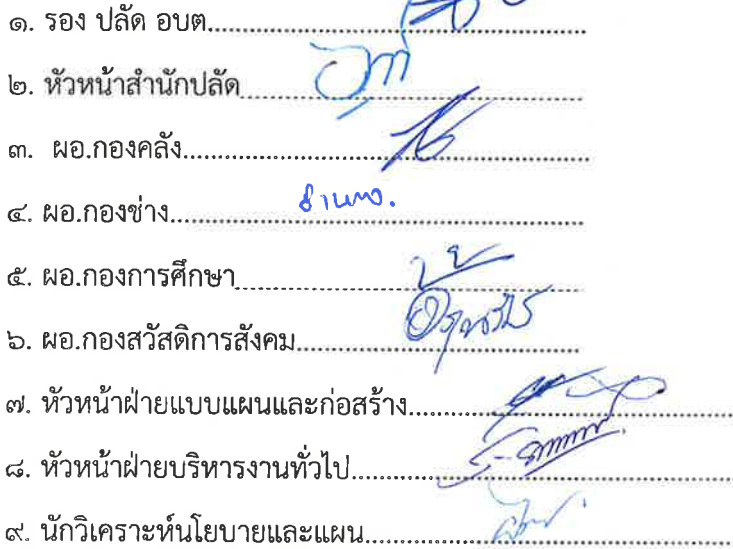 ๑. รอง ปลัด อบต.............................................................
๒. หัวหน้าสำนักปลัด.............................................................
๓. ผอ.กองคลัง.............................................................
๔. ผอ.กองช่าง.............................................................
๕. ผอ.กองการศึกษา.............................................................
๖. ผอ.กองสวัสดิการสังคม.............................................................
๗. หัวหน้าฝ่ายแบบแผนและก่อสร้าง.............................................................
๘. หัวหน้าฝ่ายบริหารงานทั่วไป.............................................................
๙. นักวิเคราะห์นโยบายและแผน.............................................................